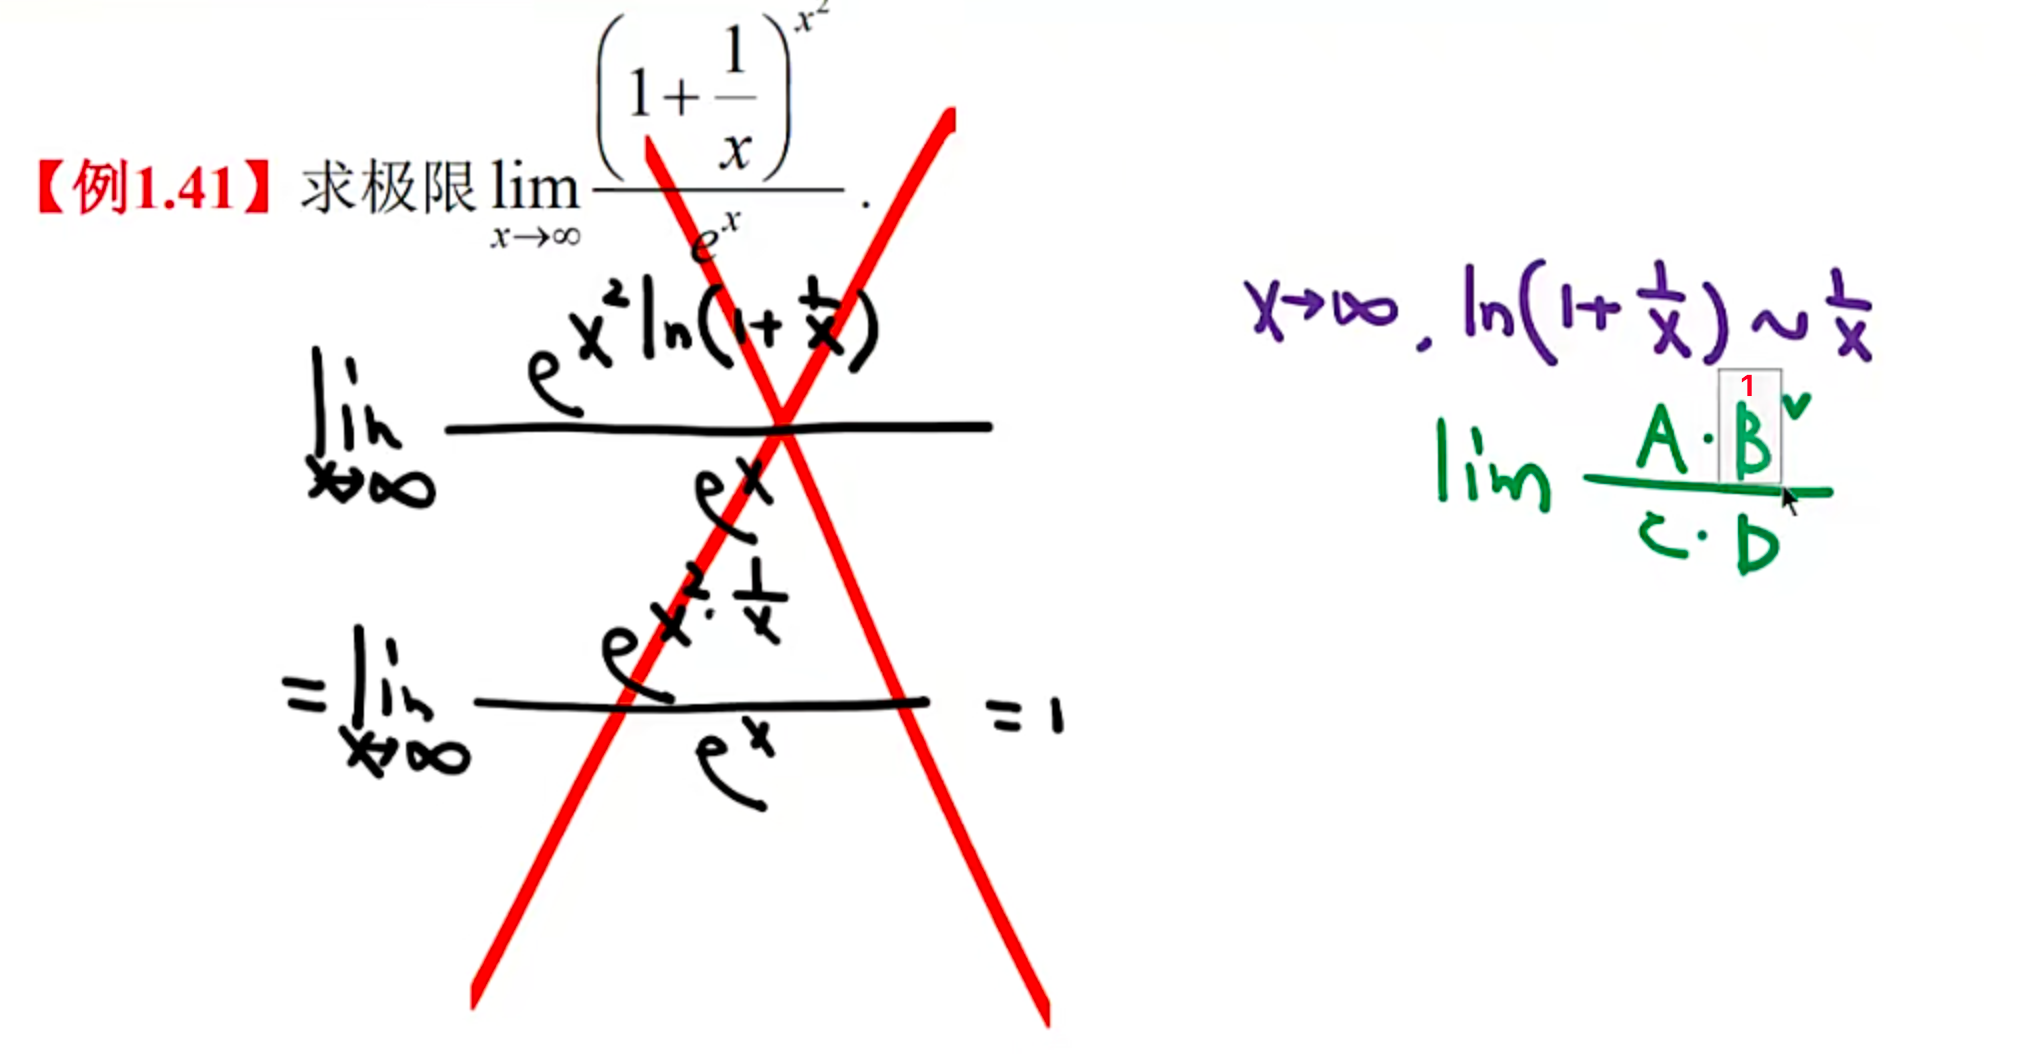 【例1.41】求极限 lim x→∞ (1+1/x)^x² / e^x .
lim x→∞ e^x² ln(1+1/x) / e^x
= lim x→∞ e^x²·1/x / e^x = 1
x→∞, ln(1+1/x) ~ 1/x
1
lim A·B / C·D